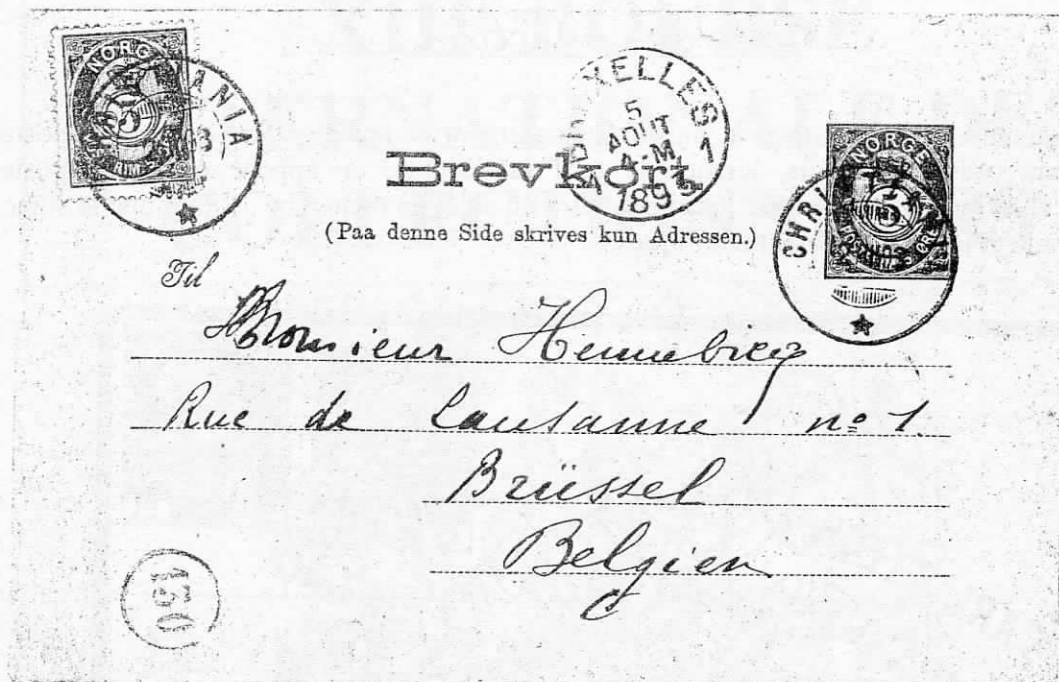 NORGE
5
ANIA
XELLES
5
AOUT
4-M
1
189
Brevkort
(Paa denne Side skrives kun Adressen.)
NORGE
5
CHRI
Til
Monsieur Hennebicq
Rue de Lausanne nº 1.
Brüssel
Belgien
130